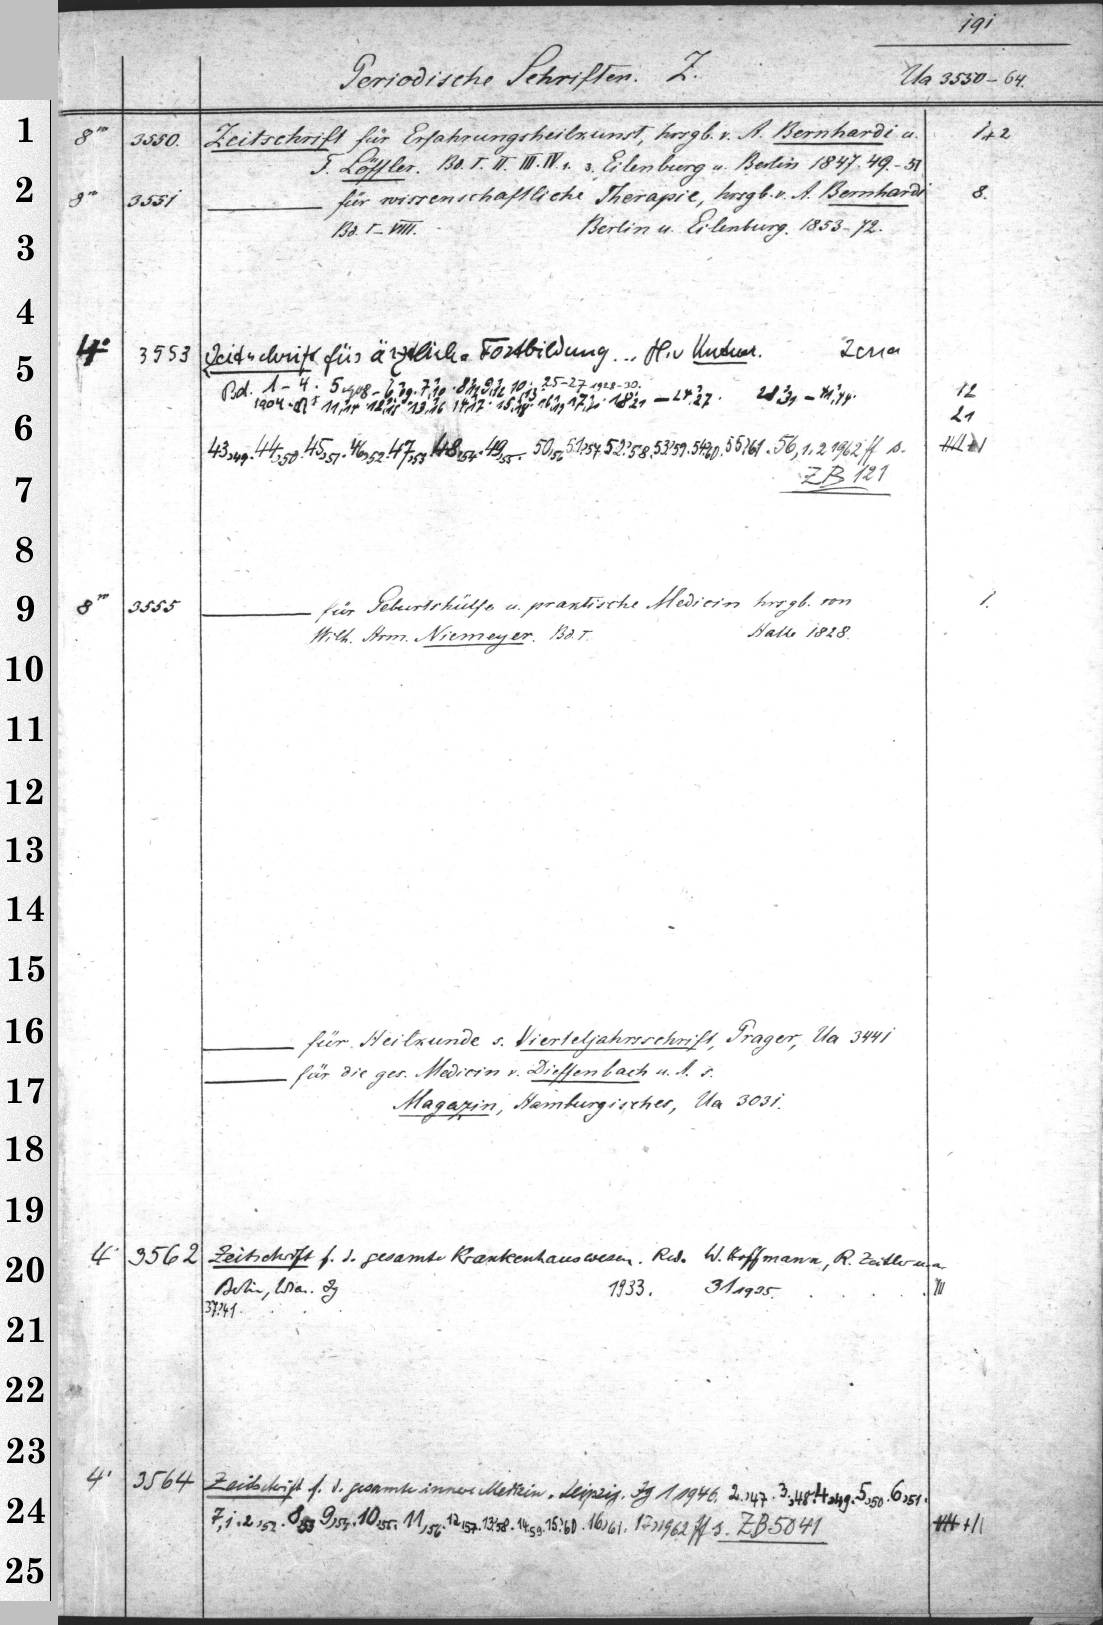 191
Periodische Schriften. Z. Ua 3550-64.
1
8° 3550. Zeitschrift für Erfahrungsheilkunst, hrsgb. v. A. Bernhardi u. 1+2
F. Löffler. Bd. I. II. III. IV 1. 3. Eilenburg u. Berlin 1847. 49.-51
2
8° 3551 für wissenschaftliche Therapie, hrsgb. v. A. Bernhardi 8.
Bd. I-VIII. Berlin u. Eilenburg. 1853-72.
3
4
4° 3553 Zeitschrift für ärztliche Fortbildung ... H. v Kutner. Jena
5
Bd. 1-4. 5 1908- 6,09. 7,10. 8,11. 9,12. 10,13. 25-27 1928-30. 12
1904-07 11,14. 12,15. 13,16. 14,17. 15,18. 16,19. 17,20. 18,21 - 24,27. 28,31 - 41,44. 21
6
43,49. 44,50. 45,51. 46,52. 47,53. 48,54. 49,55. 50,56. 51,57. 52,58. 53,59. 54,60. 55,61. 56,1.2 1962 ff s.
7
ZB 121
8
9
8° 3555 für Geburtshülfe u. praktische Medicin hrsgb. von 1.
Wilh. Herm. Niemeyer. Bd. I. Halle 1828.
10
11
12
13
14
15
16
für Heilkunde s. Vierteljahrsschrift, Prager, Ua 3441
für die ges. Medicin v. Dieffenbach u. A. s.
17
Magazin, Hamburgisches, Ua 3031.
18
19
4° 3562 Zeitschrift f. d. gesamte Krankenhauswesen. Red. W. Hoffmann, R. Zeitler u. a.
20
Berlin, Wien. Jg 1933. 31 1935.
37,41.
21
22
23
4° 3564 Zeitschrift f. d. gesamte innere Medizin. Leipzig. Jg 1 1946. 2,47. 3,48. 4,49. 5,50. 6,51.
24
7,1.2,52. 8,53. 9,54. 10,55. 11,56. 12,57. 13,58. 14,59. 15,60. 16,61. 17,1962 ff s. ZB 5041
25